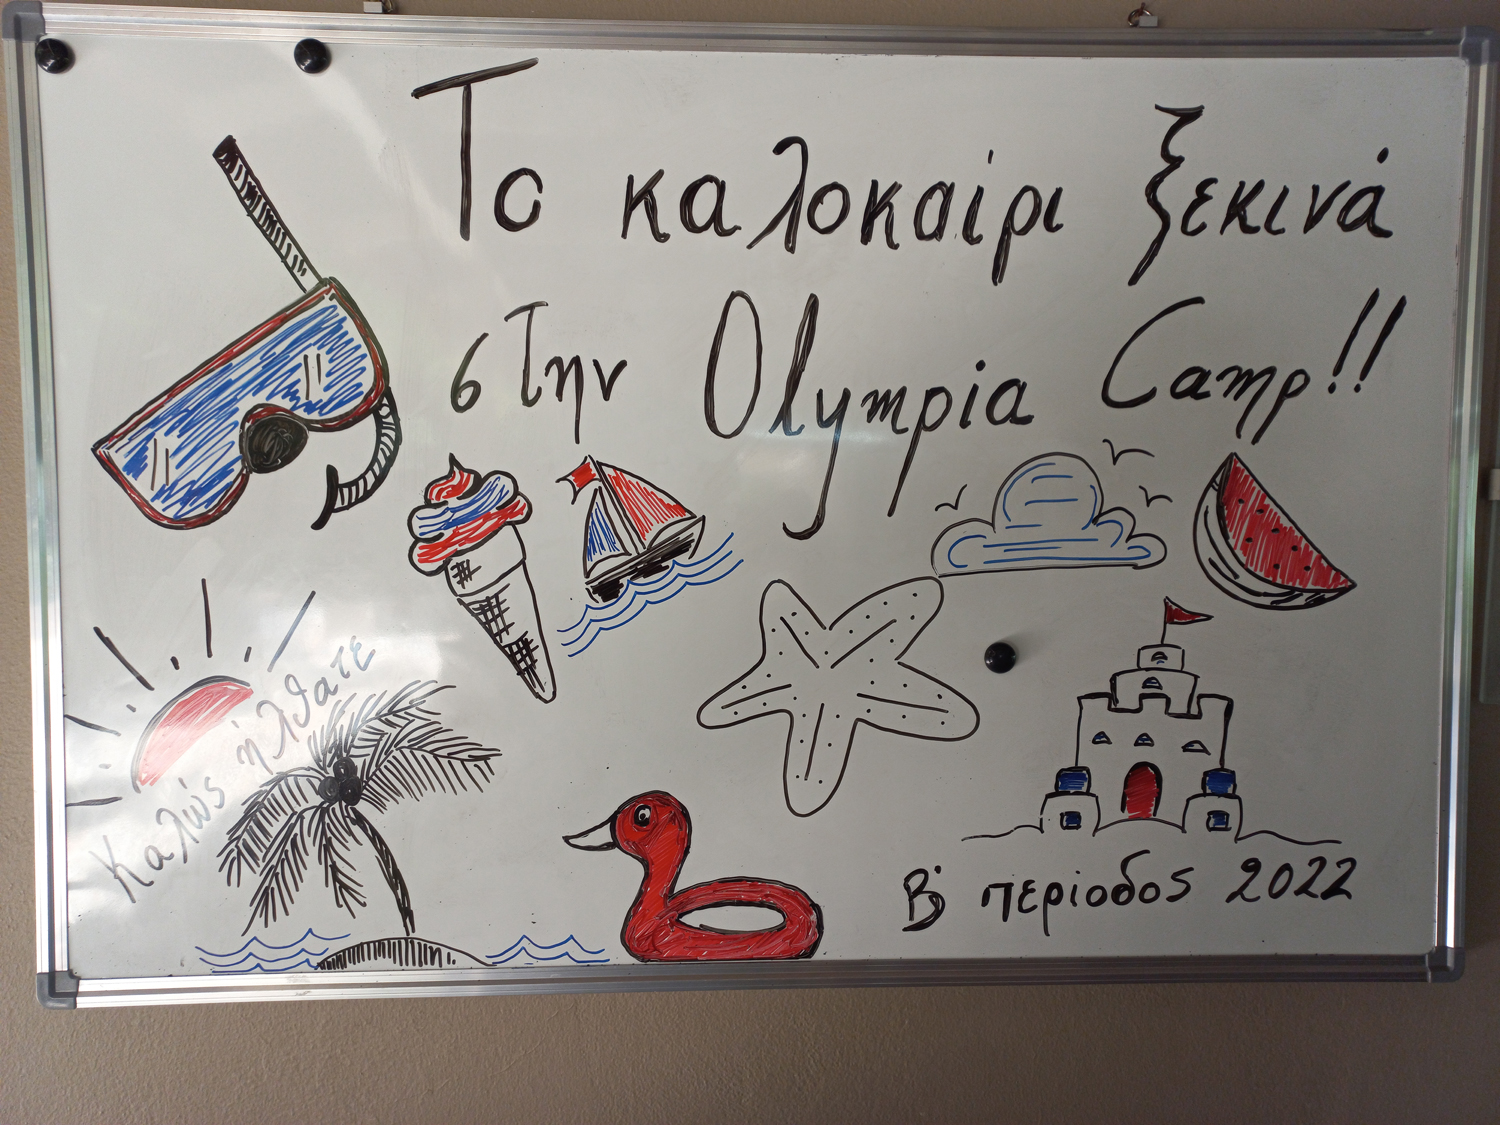 Το καλοκαίρι ξεκινά
στην Olympia Camp!!
Καλώς ήλθατε
Β' περίοδος 2022